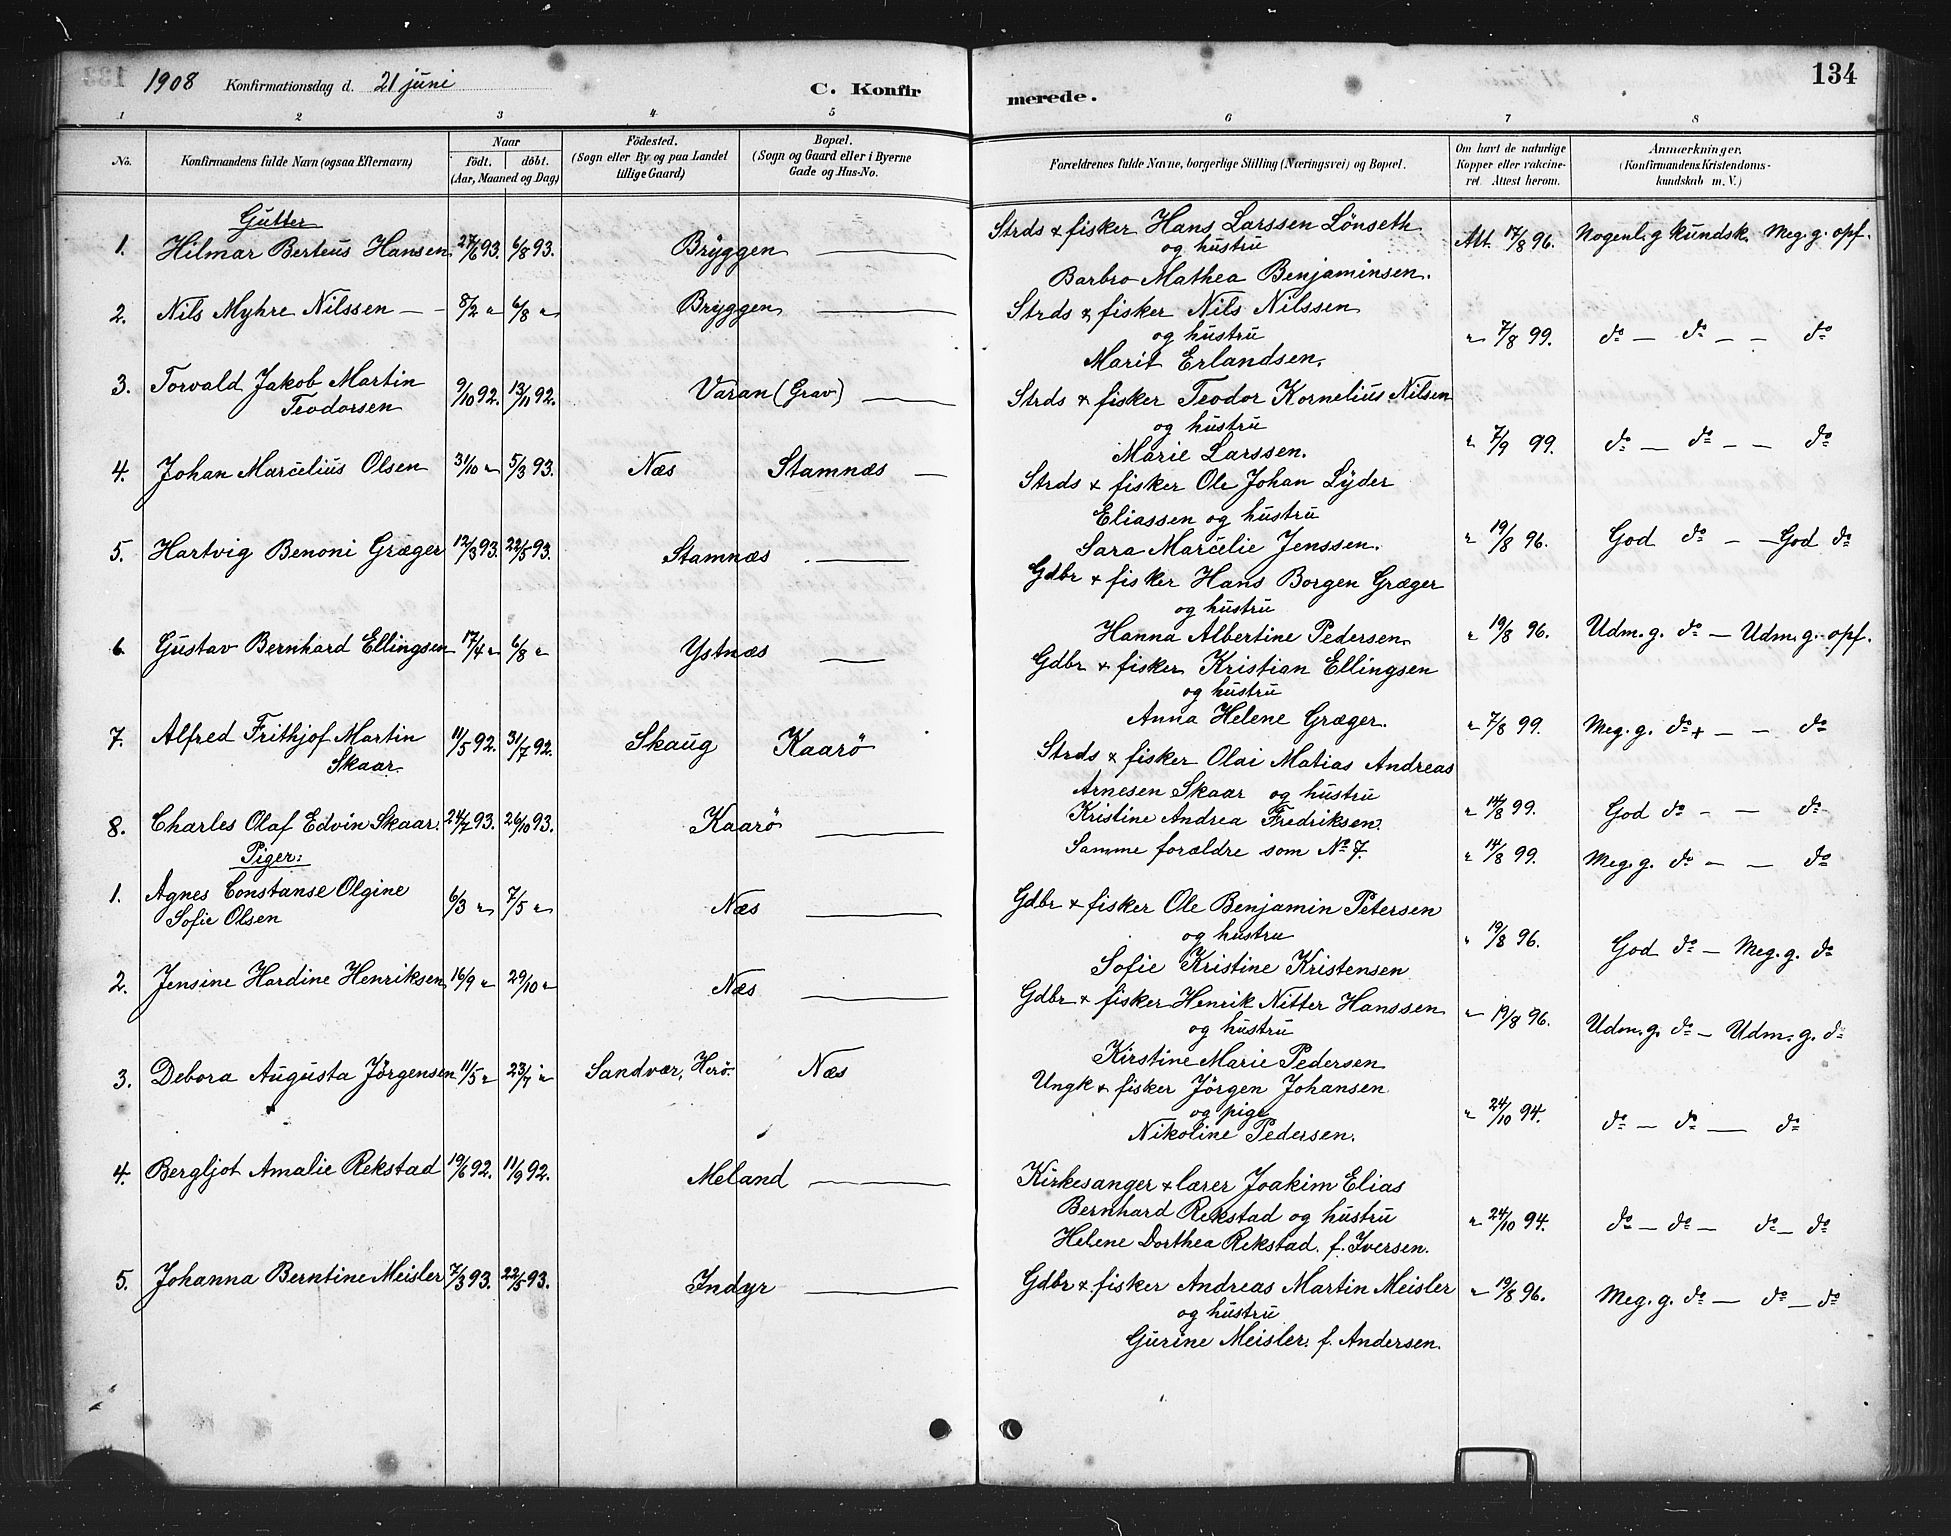 1908 Konfirmationsdag d. 21 juni C. Konfirmerede. 134
1 2 3 4 5 6 7 8
No. Konfirmandens fulde Navn (ogsaa Efternavn) Naar födt. döbt. (Aar, Maaned og Dag) Födested. (Sogn eller By og paa Landet tillige Gaard) Bopæl. (Sogn og Gaard eller i Byerne Gade og Hus-No. Forældrenes fulde Navne, borgerlige Stilling (Næringsvei) og Bopæl. Om havt de naturlige Kopper eller vakcineret. Attest herom. Anmærkninger. (Konfirmandens Kristendomskundskab m. V.)
Gutter
1. Hilmar Berteus Hansen 27/6 93. 6/8 93. Bryggen — Strds & fisker Hans Larssen Lönseth
og hustru
Barbro Mathea Benjaminsen. Att. 17/8 96. Nogenl. g kundsk. Meg. g. opf.
2. Nils Myhre Nilssen — - 8/2 " 6/8 " Bryggen — Strds & fisker Nils Nilssen
og hustru
Marit Erlandsen. " 7/8 99. do — do — — do
3. Torvald Jakob Martin
Teodorsen 9/10 92. 13/11 92. Varan (Grav) — Strds & fisker Teodor Kornelius Nilsen
og hustru
Marie Larssen. " 7/9 99. do — do — — do
4. Johan Marcelius Olsen 31/10 " 5/3 93. Næs Stamnæs — Strds & fisker Ole Johan Lyder
Eliassen og hustru
Sara Marcelie Jenssen. " 19/8 96. God do — — God do
5. Hartvig Benoni Græger 12/3 93. 22/5 93. Stamnæs — Gdbr & fisker Hans Borgen Græger
og hustru
Hanna Albertine Pedersen. " 19/8 96. Udm. g. do — Udm. g. opf.
6 Gustav Bernhard Ellingsen 17/4 " 6/8 " Ystnæs — Gdbr & fisker Kristian Ellingsen
og hustru
Anna Helene Græger. " 7/8 99. Meg. g. do + — — do
7. Alfred Frithjof Martin
Skaar. 11/5 92. 31/7 92. Skaug Kaarö Strds & fisker Olai Matias Andreas
Arnesen Skaar og hustru
Kristine Andrea Fredriksen. " 14/8 99. God do - — do
8. Charles Olaf Edvin Skaar. 24/7 93. 26/10 93. Kaarö — Samme forældre som No 7. " 14/8 99. Meg. g. do — — do
Piger:
1. Agnes Constanse Olgine
Sofie Olsen 6/3 " 7/5 " Næs — Gdbr & fisker Ole Benjamin Petersen
og hustru
Sofie Kristine Kristensen " 19/8 96. God do — Meg. g. do
2. Jensine Hardine Henriksen 16/9 " 29/10 " Næs — Gdbr & fisker Henrik Nitter Hanssen
og hustru
Kirstine Marie Pedersen " 19/8 96. Udm. g. do — Udm. g. do
3. Debora Augusta Jörgensen 11/5 " 23/7 " Sandvær, Herö. Næs Ungk & fisker Jörgen Johansen
og pige
Nikoline Pedersen. " 24/10 94. do — do — do
4. Bergljot Amalie Rekstad 19/6 92. 11/9 92. Meland — Kirkesanger & lærer Joakim Elias
Bernhard Rekstad og hustru
Helene Dorthea Rekstad. f. Iversen. " 24/10 94. do — do — do — do
5. Johanna Berntine Meisler 7/3 93. 22/5 93. Indyr — Gdbr & fisker Andreas Martin Meisler
og hustru
Gurine Meisler. f. Andersen. " 19/8 96. Meg. g. do — do — do